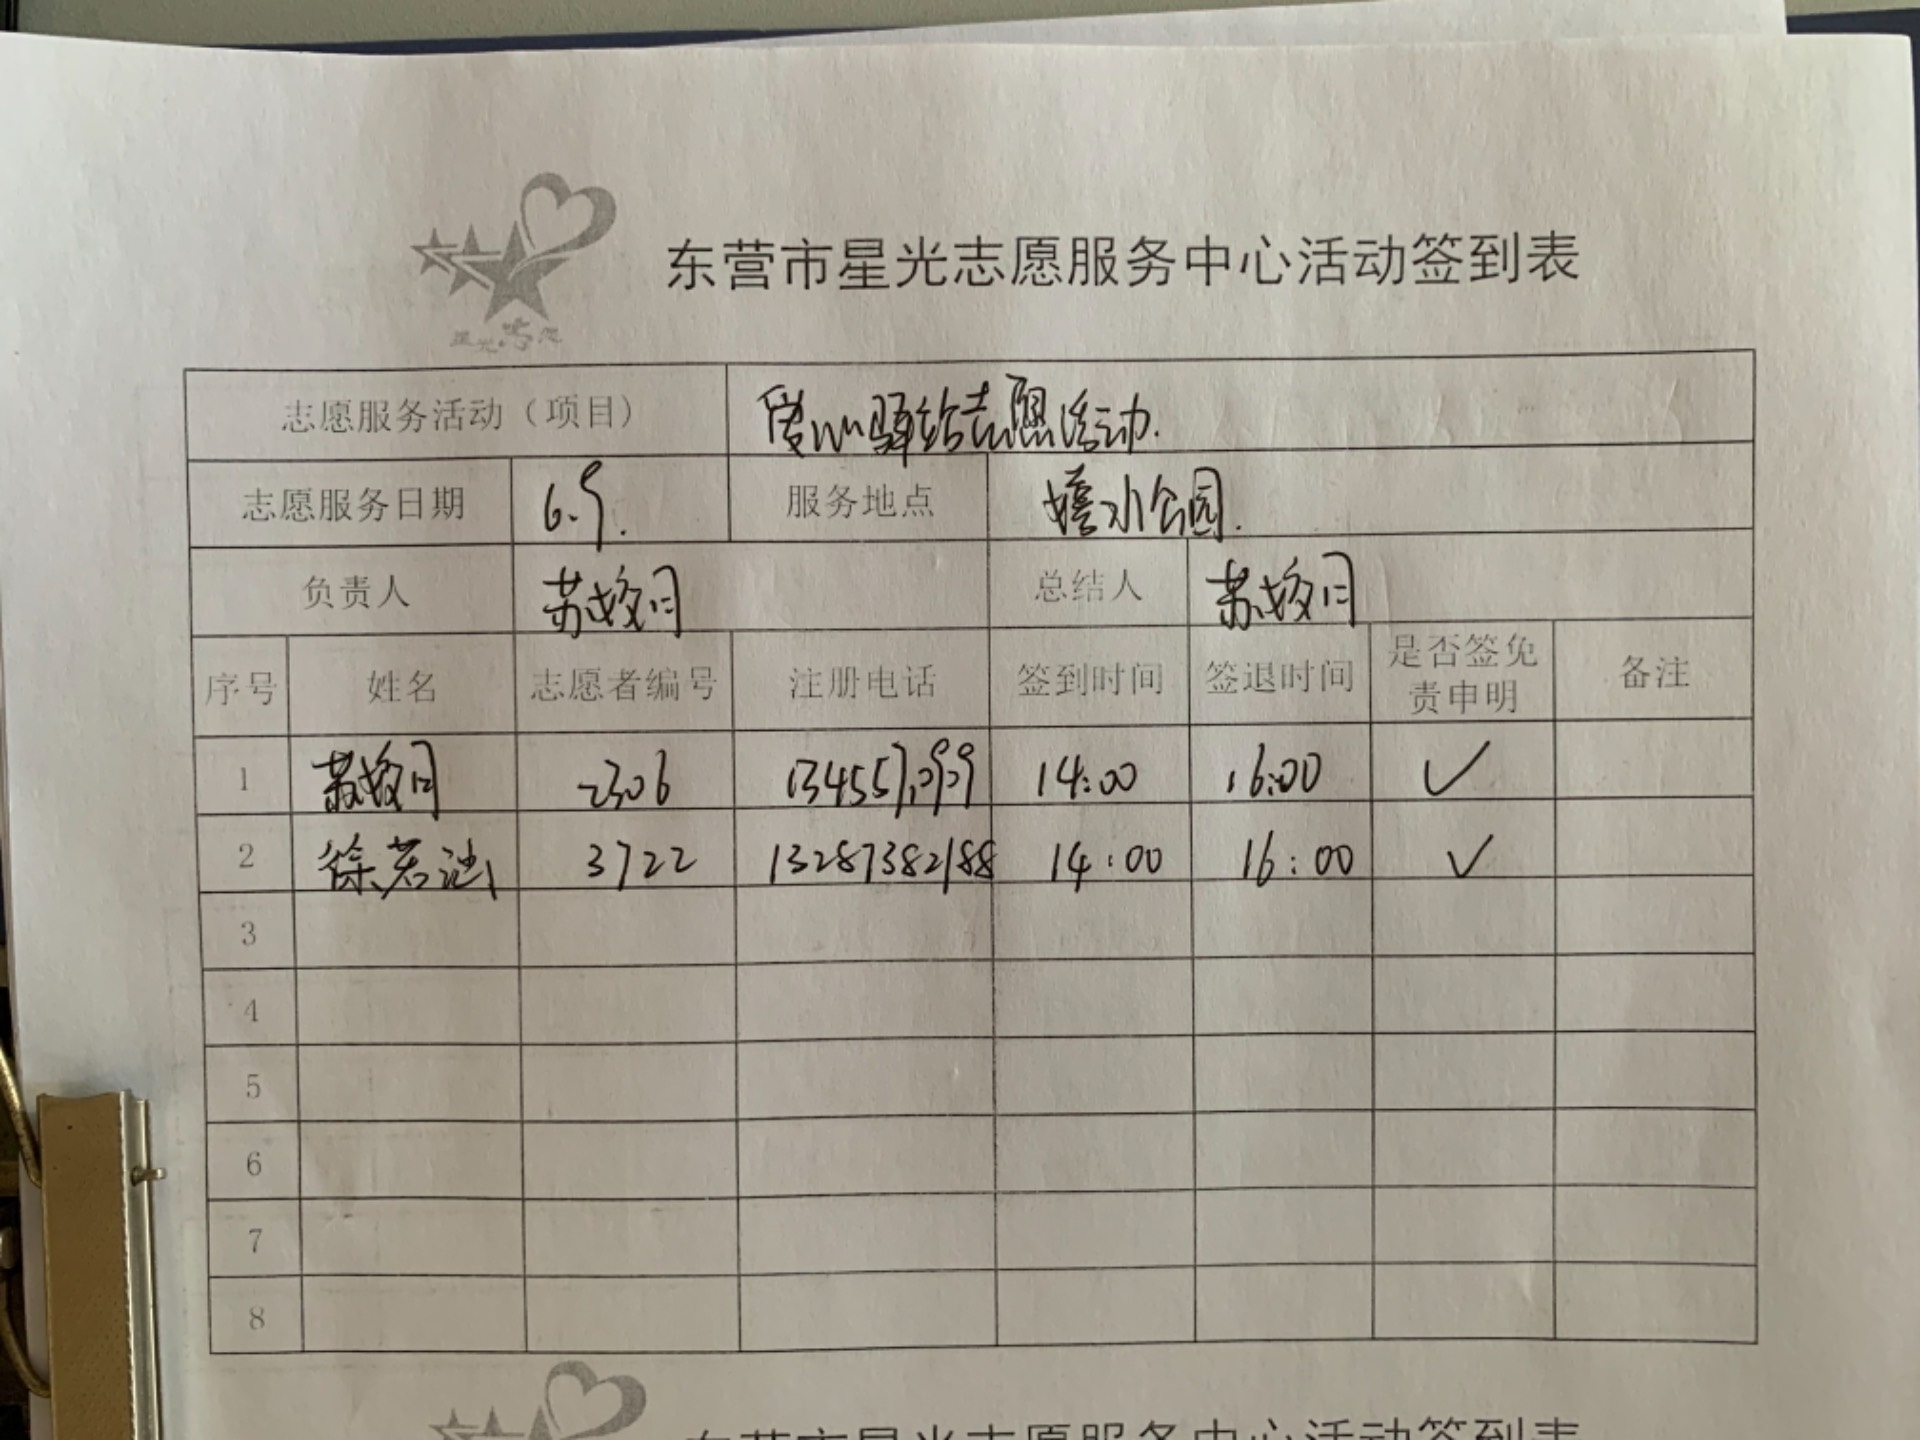 星光志愿
东营市星光志愿服务中心活动签到表
志愿服务活动（项目） 爱心驿站志愿活动.
志愿服务日期 6.9. 服务地点 嬉水公园.
负责人 苏姣月 总结人 苏姣月
序号 姓名 志愿者编号 注册电话 签到时间 签退时间 是否签免责申明 备注
1 苏姣月 2306 14:00 16:00 ✓
2 徐若涵 3722 13287382188 14:00 16:00 ✓
3
4
5
6
7
8
东营市星光志愿服务中心活动签到表